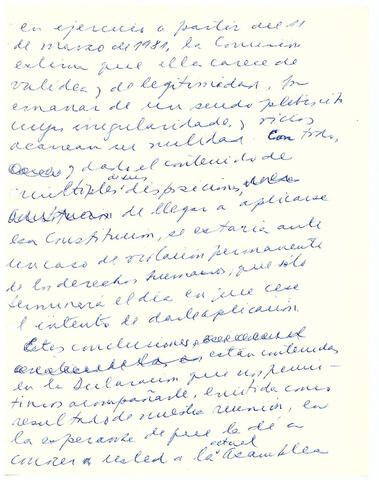 en ejercicio a partir del 11
de marzo de 1981, la Comisión
estima que ella carece de
validez y de legitimidad, por
emanar de un seudo plebiscito
cuyas irregularidades y vicios
acarrean su nulidad. Con todo,
y dado el contenido de
multiples de sus disposiciones,
de llegar a aplicarse
esa Constitución, se estaría ante
un caso de violación permanente
de los derechos humanos, que sólo
terminará el día en que cese
el intento de darle aplicación.
Estas conclusiones
están contenidas
en la Declaración que nos permi-
timos acompañarle, emitida como
resultado de nuestra reunión, en
la esperanza de que la dé a
conocer a usted a la actual Asamblea